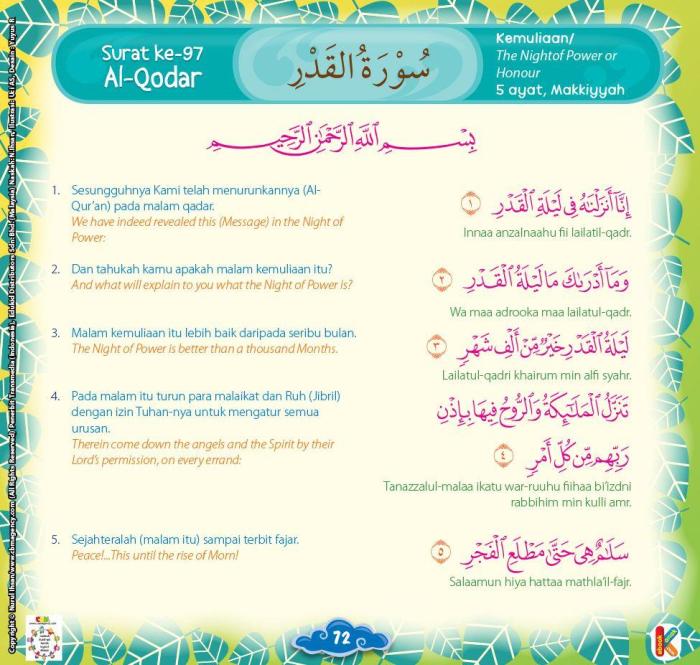 Surat ke-97
Al-Qodar
سُوْرَةُ الْقَدْرِ
Kemuliaan/
The Nightof Power or
Honour
5 ayat, Makkiyyah
بِسْمِ اللَّهِ الرَّحْمَنِ الرَّحِيمِ
1. Sesungguhnya Kami telah menurunkannya (Al-
Qur'an) pada malam qadar.
We have indeed revealed this (Message) in the Night of
Power:
إِنَّا أَنْزَلْنَاهُ فِي لَيْلَةِ الْقَدْرِ ١
Innaa anzalnaahu fii lailatil-qadr.
2. Dan tahukah kamu apakah malam kemuliaan itu?
And what will explain to you what the Night of Power is?
وَمَا أَدْرَىٰكَ مَا لَيْلَةُ الْقَدْرِ ٢
Wa maa adrooka maa lailatul-qadr.
3. Malam kemuliaan itu lebih baik daripada seribu bulan.
The Night of Power is better than a thousand Months.
لَيْلَةُ الْقَدْرِ خَيْرٌ مِّنْ أَلْفِ شَهْرٍ ٣
Lailatul-qadri khairum min alfi syahr.
4. Pada malam itu turun para malaikat dan Ruh (Jibril)
dengan izin Tuhan-nya untuk mengatur semua
urusan.
Therein come down the angels and the Spirit by their
Lord's permission, on every errand:
تَنَزَّلُ الْمَلَٰٓئِكَةُ وَالرُّوحُ فِيهَا بِإِذْنِ
رَبِّهِم مِّن كُلِّ أَمْرٍ ٤
Tanazzalul-malaa ikatu war-ruuhu fiihaa bi'izdni
rabbihim min kulli amr.
5. Sejahteralah (malam itu) sampai terbit fajar.
Peace!...This until the rise of Morn!
سَلَٰمٌ هِيَ حَتَّىٰ مَطْلَعِ الْفَجْرِ ٥
Salaamun hiya hattaa mathla'il-fajr.
72
ebook